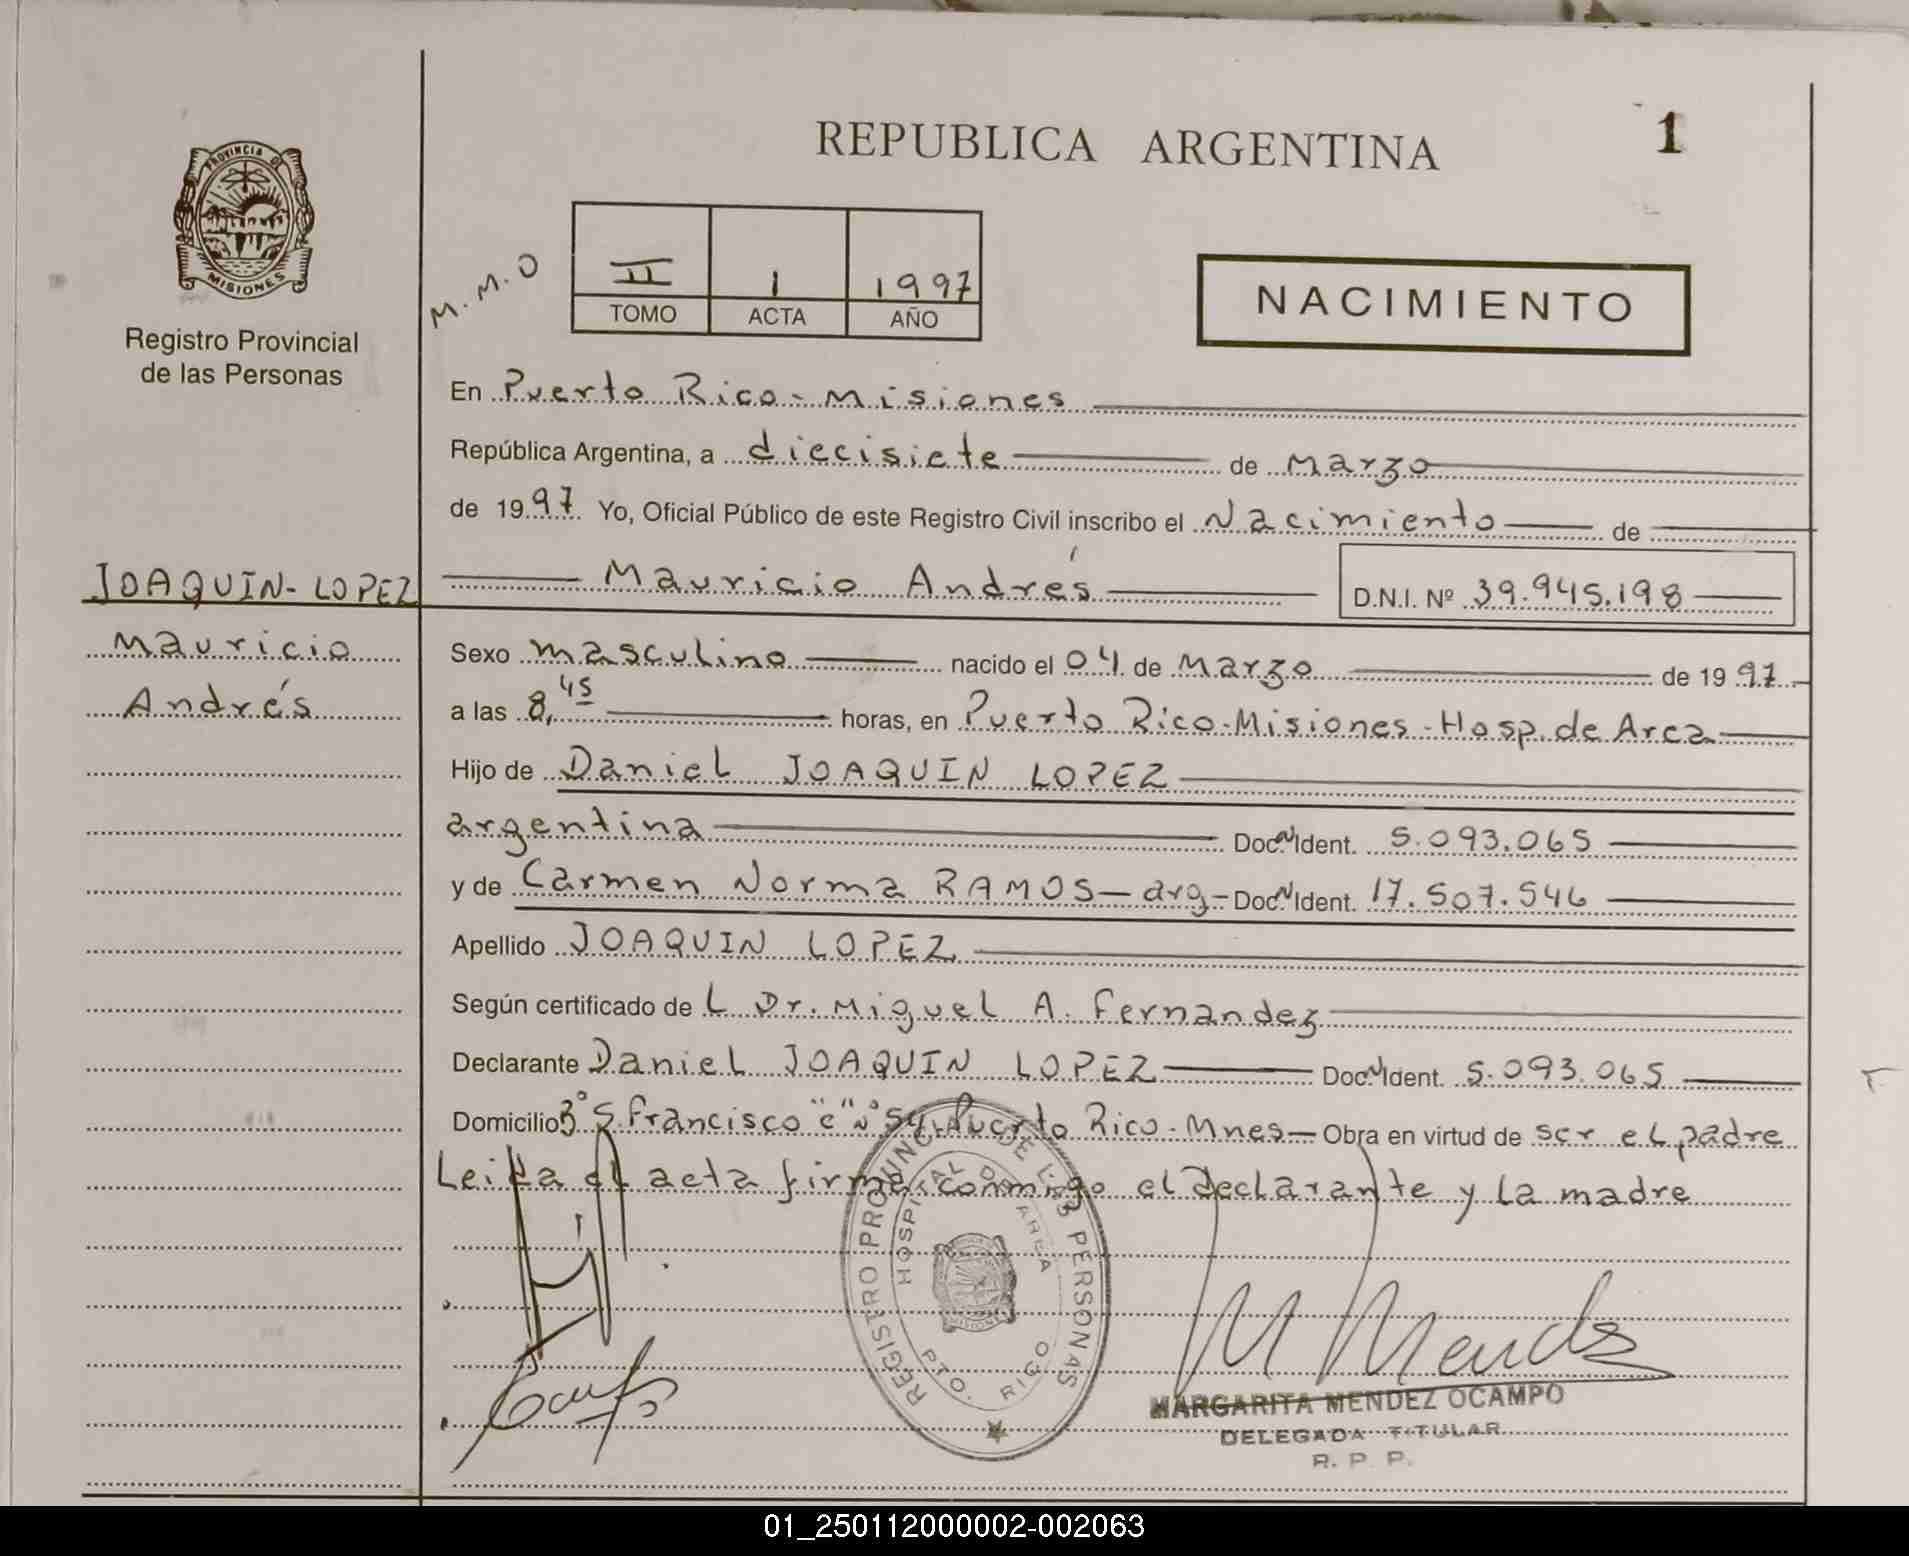 REPUBLICA ARGENTINA
1
PROVINCIA DE
MISIONES
Registro Provincial
de las Personas
M. M. O
II 1 1997
TOMO ACTA AÑO
NACIMIENTO
En Puerto Rico - Misiones
República Argentina, a diecisiete de Marzo
de 1997 Yo, Oficial Público de este Registro Civil inscribo el Nacimiento de
JOAQUIN-LOPEZ
Mauricio
Andrés
Mauricio Andrés D.N.I. Nº 39.945.198
Sexo masculino nacido el 04 de Marzo de 1997
a las 8,45 horas, en Puerto Rico-Misiones-Hosp. de Area
Hijo de Daniel JOAQUIN LOPEZ
argentina Doc. N Ident. 5.093.065
y de Carmen Norma RAMOS - arg - Doc. N Ident. 17.507.546
Apellido JOAQUIN LOPEZ
Según certificado de L Dr. Miguel A. Fernandez
Declarante Daniel JOAQUIN LOPEZ Doc. N Ident. 5.093.065
Domicilio Bº S. Francisco "c" Nº 54. Puerto Rico - Mnes - Obra en virtud de ser el padre
Leida el acta firma conmigo el declarante y la madre
REGISTRO PROVINCIAL DE LAS PERSONAS
HOSPITAL DE AREA
MISIONES
PTO. RICO
M Mendz
MARGARITA MENDEZ OCAMPO
DELEGADA TITULAR
R. P. P.
01_250112000002-002063